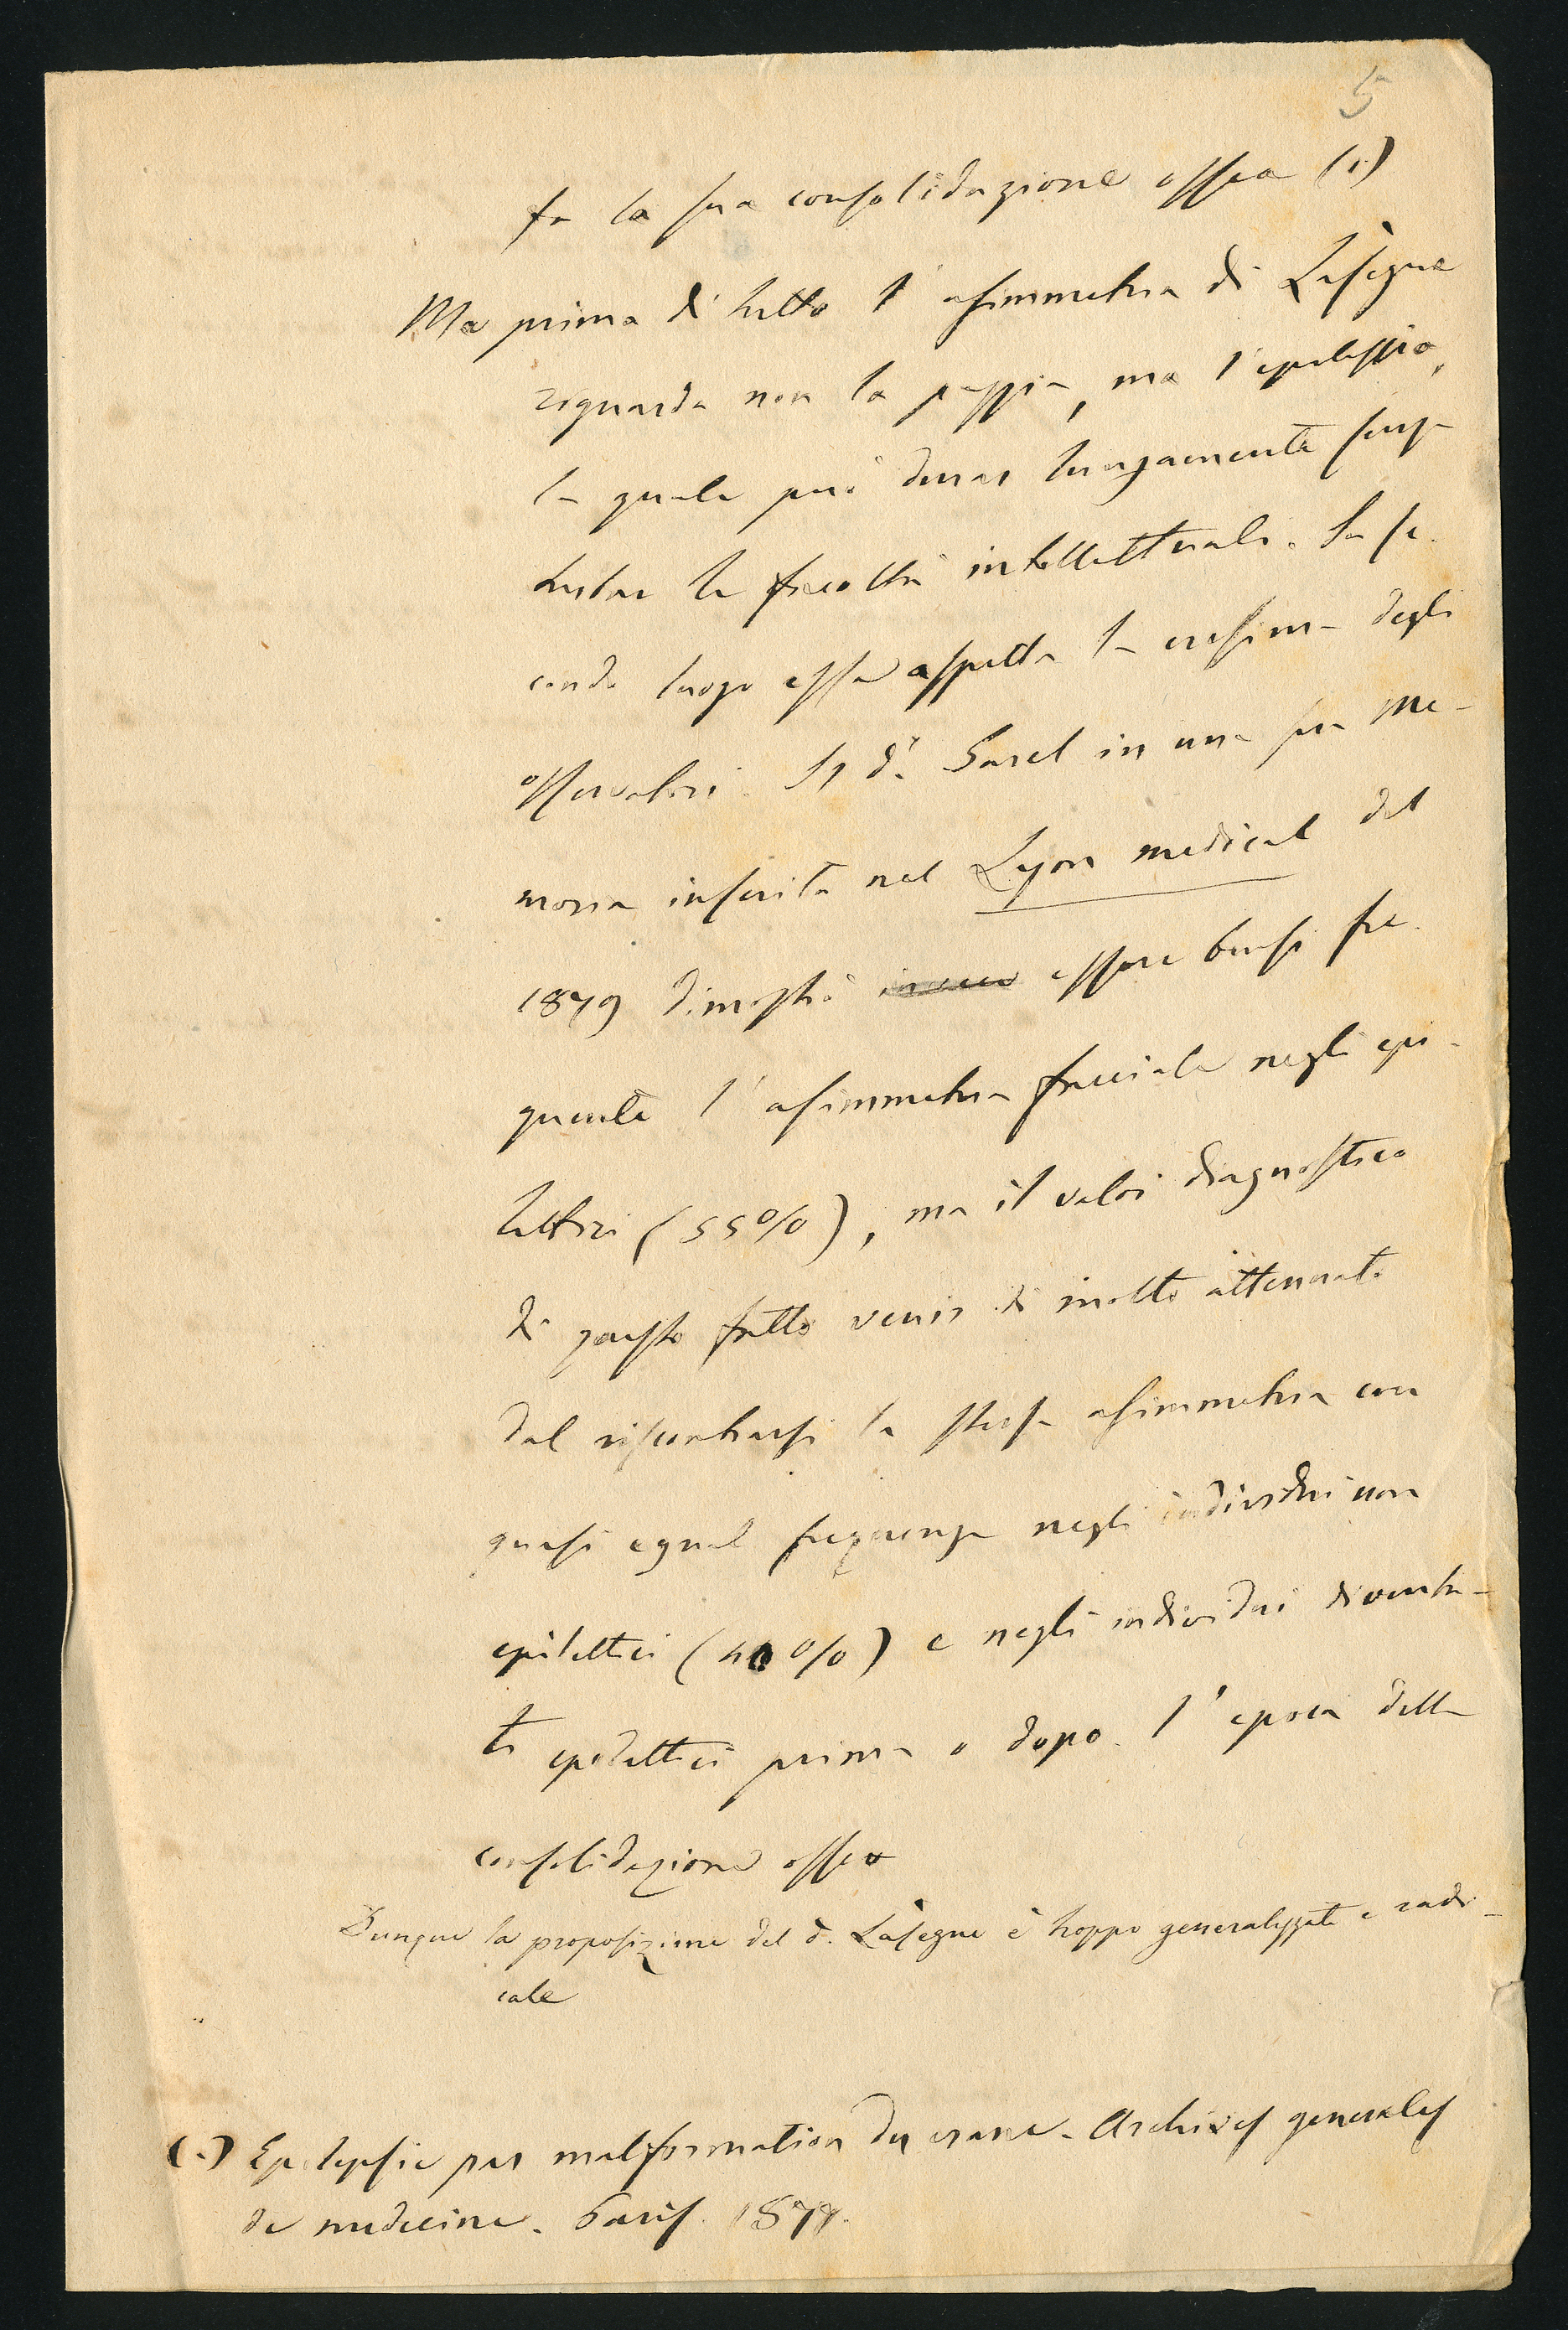 5
fa la sua consolidazione ossea (1)
Ma prima di tutto l'asimmetria di Lasègue
riguarda non la pazzia, ma l'epilessia,
la quale può durar lungamente senza
turbar le facoltà intellettuali. In se-
condo luogo essa aspetta la cresima degli
osservatori. Il dr. Garel in una sua me-
moria inserita nel Lyon medical del
1879 dimostrò invece essere bensì fre-
quente l'asimmetria facciale negli epi-
lettici (55%), ma il valor diagnostico
di questo fatto venir di molto attenuato
dal riscontrarsi la stessa asimmetria con
quasi egual frequenza negli individui non
epilettici (40%) e negli individui diventa-
ti epilettici prima o dopo l'epoca della
consolidazione ossea
Dunque la proposizione del d. Lasègue è troppo generalizzata e radi-
cale
(1) Epilepsie par malformation du crane. Archives generales
de medecine. Paris. 1877.